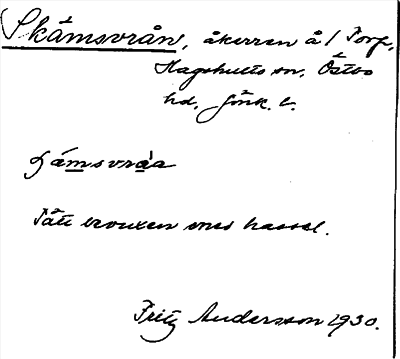 Skåmsvrån, åkerren å / Torp,
Hagshults sn, Östbo
hd, Jönk. l.
Tätt bevuxen med hassel.
Fritz Andersson 1930.